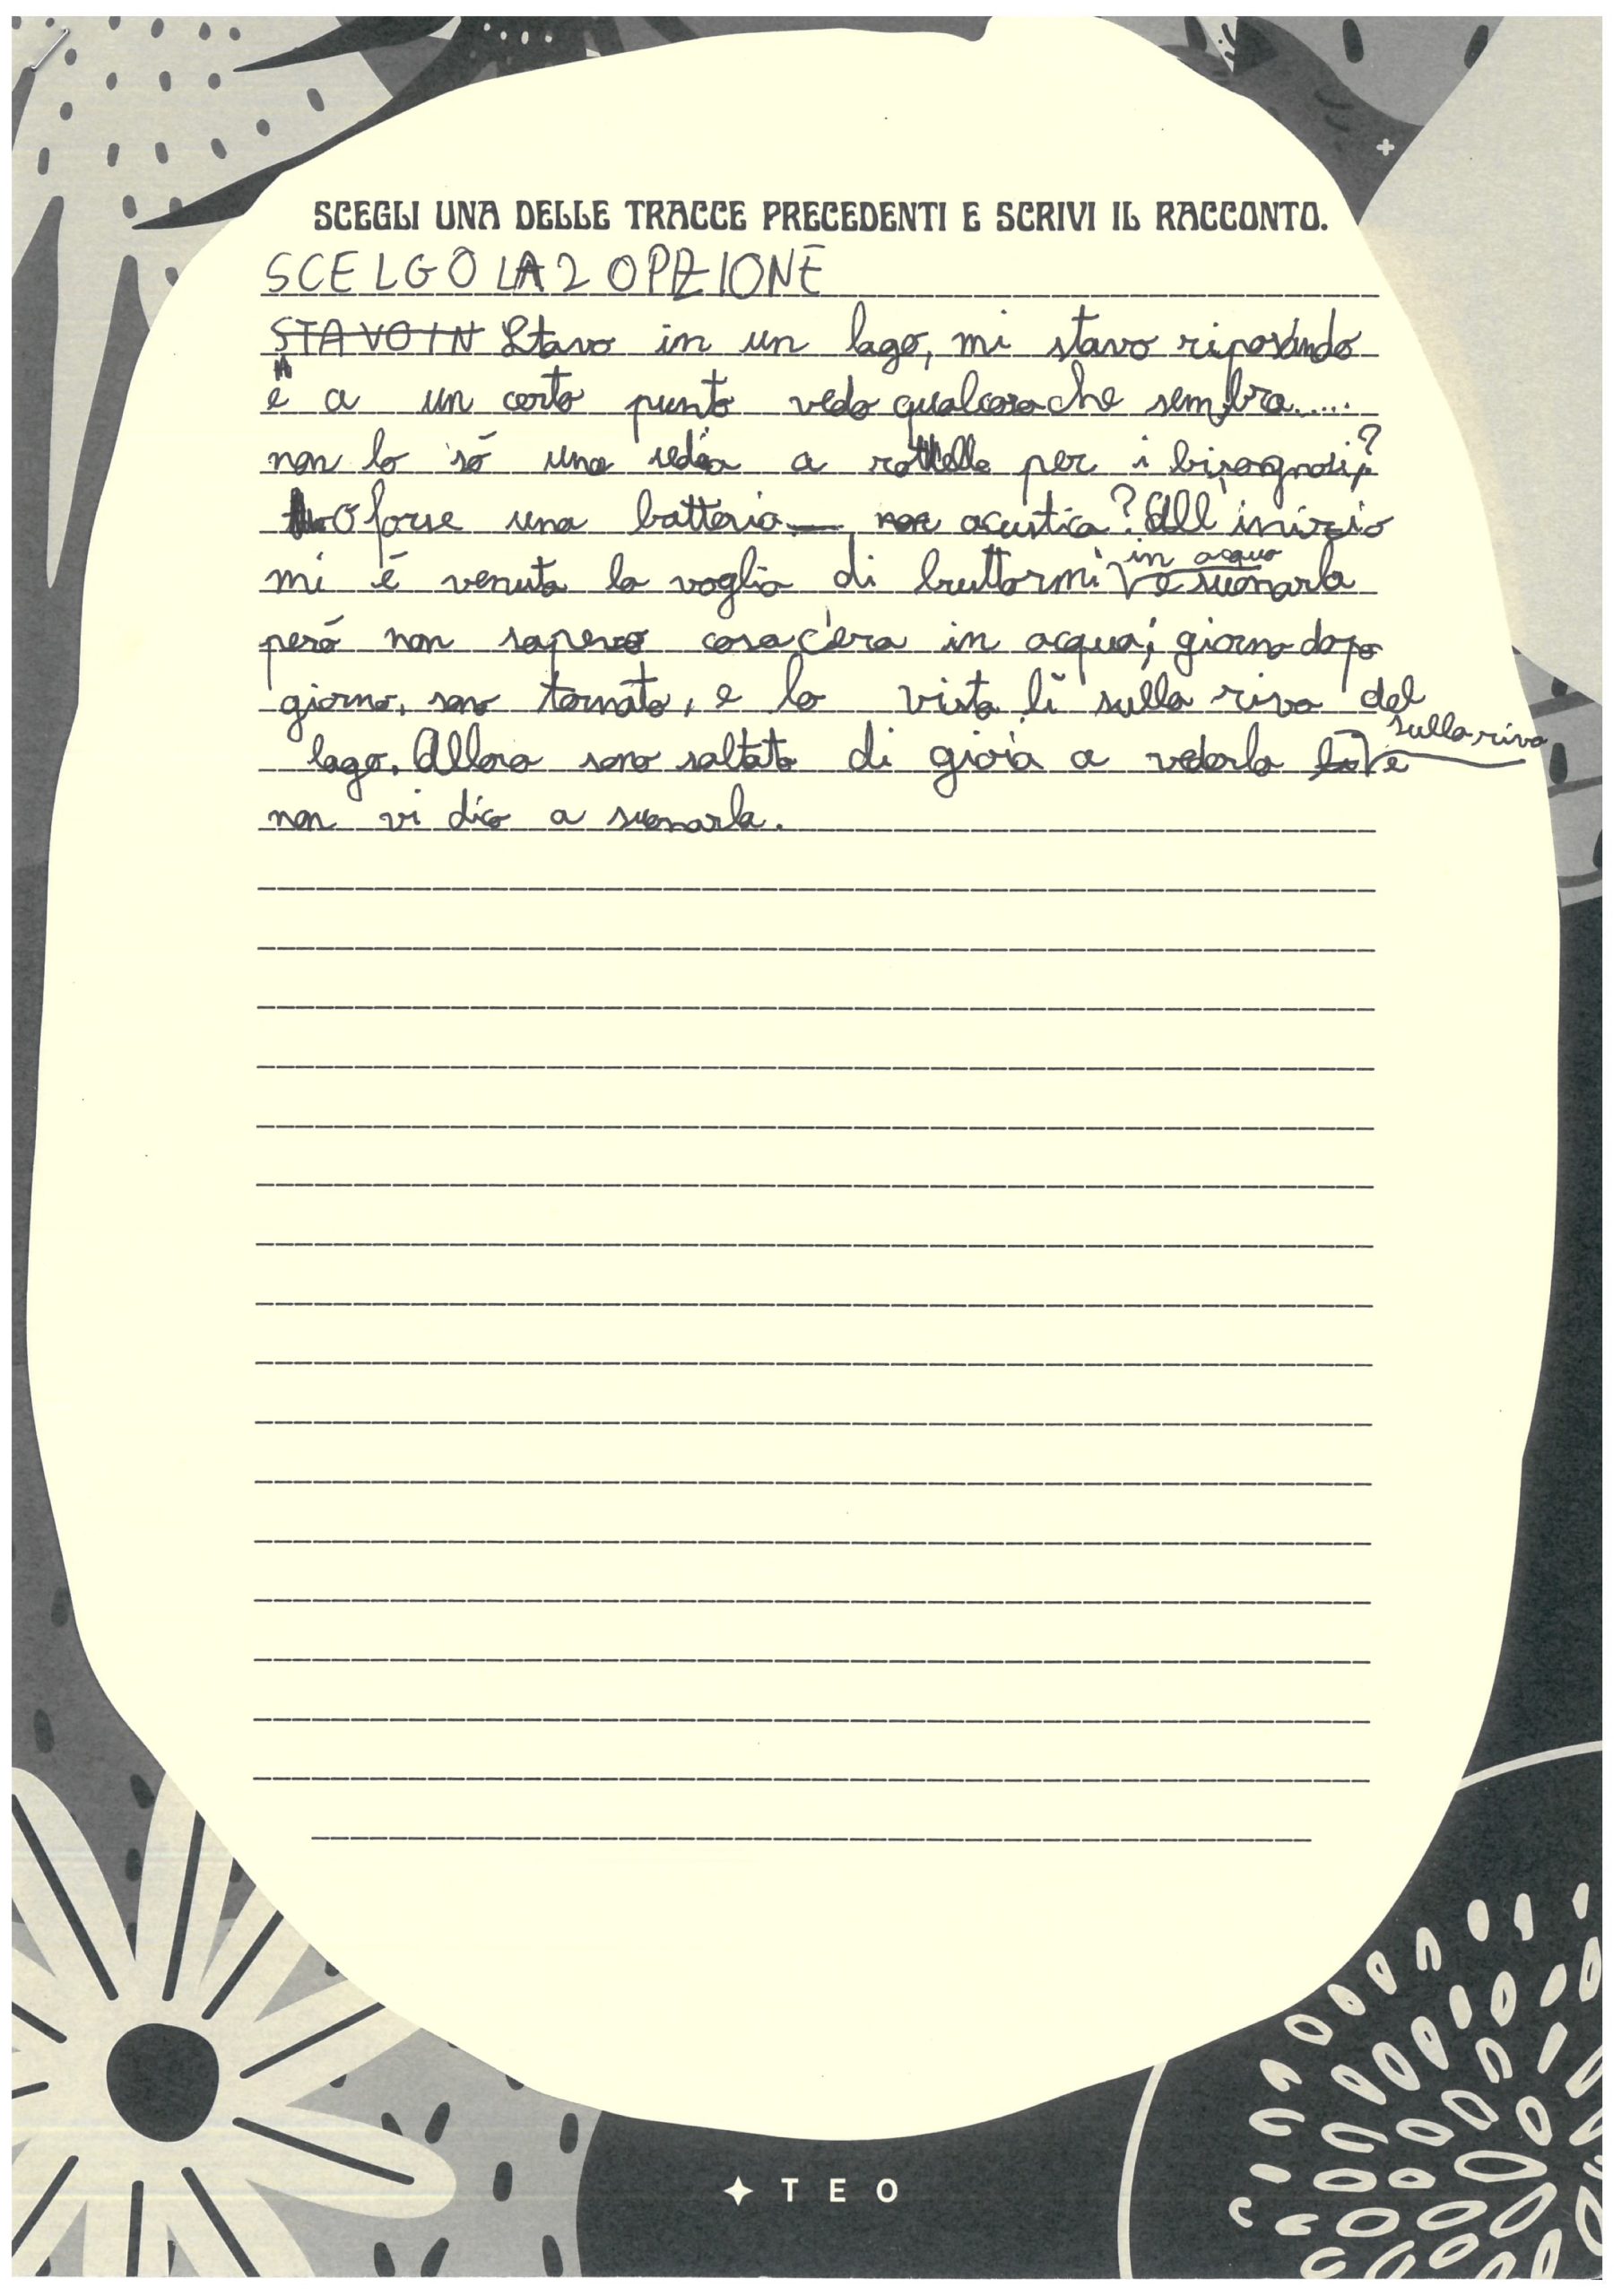 SCEGLI UNA DELLE TRACCE PRECEDENTI E SCRIVI IL RACCONTO.
SCELGO LA 2 OPZIONE
STAVO IN Stavo in un lago, mi stavo riposando
e a un certo punto vedo qualcosa che sembra.....
non lo só una sedia a rotelle per i bisognosi?
O forse una batteria non acustica? All'inizio
mi é venuta la voglia di buttarmi in acqua e suonarla
peró non sapevo cosa c'era in acqua; giorno dopo
giorno, sono tornato, e lo vista lì sulla riva del
lago. Allora sono saltato di gioia a vederla sulla riva e
non vi dico a suonarla.
TEO